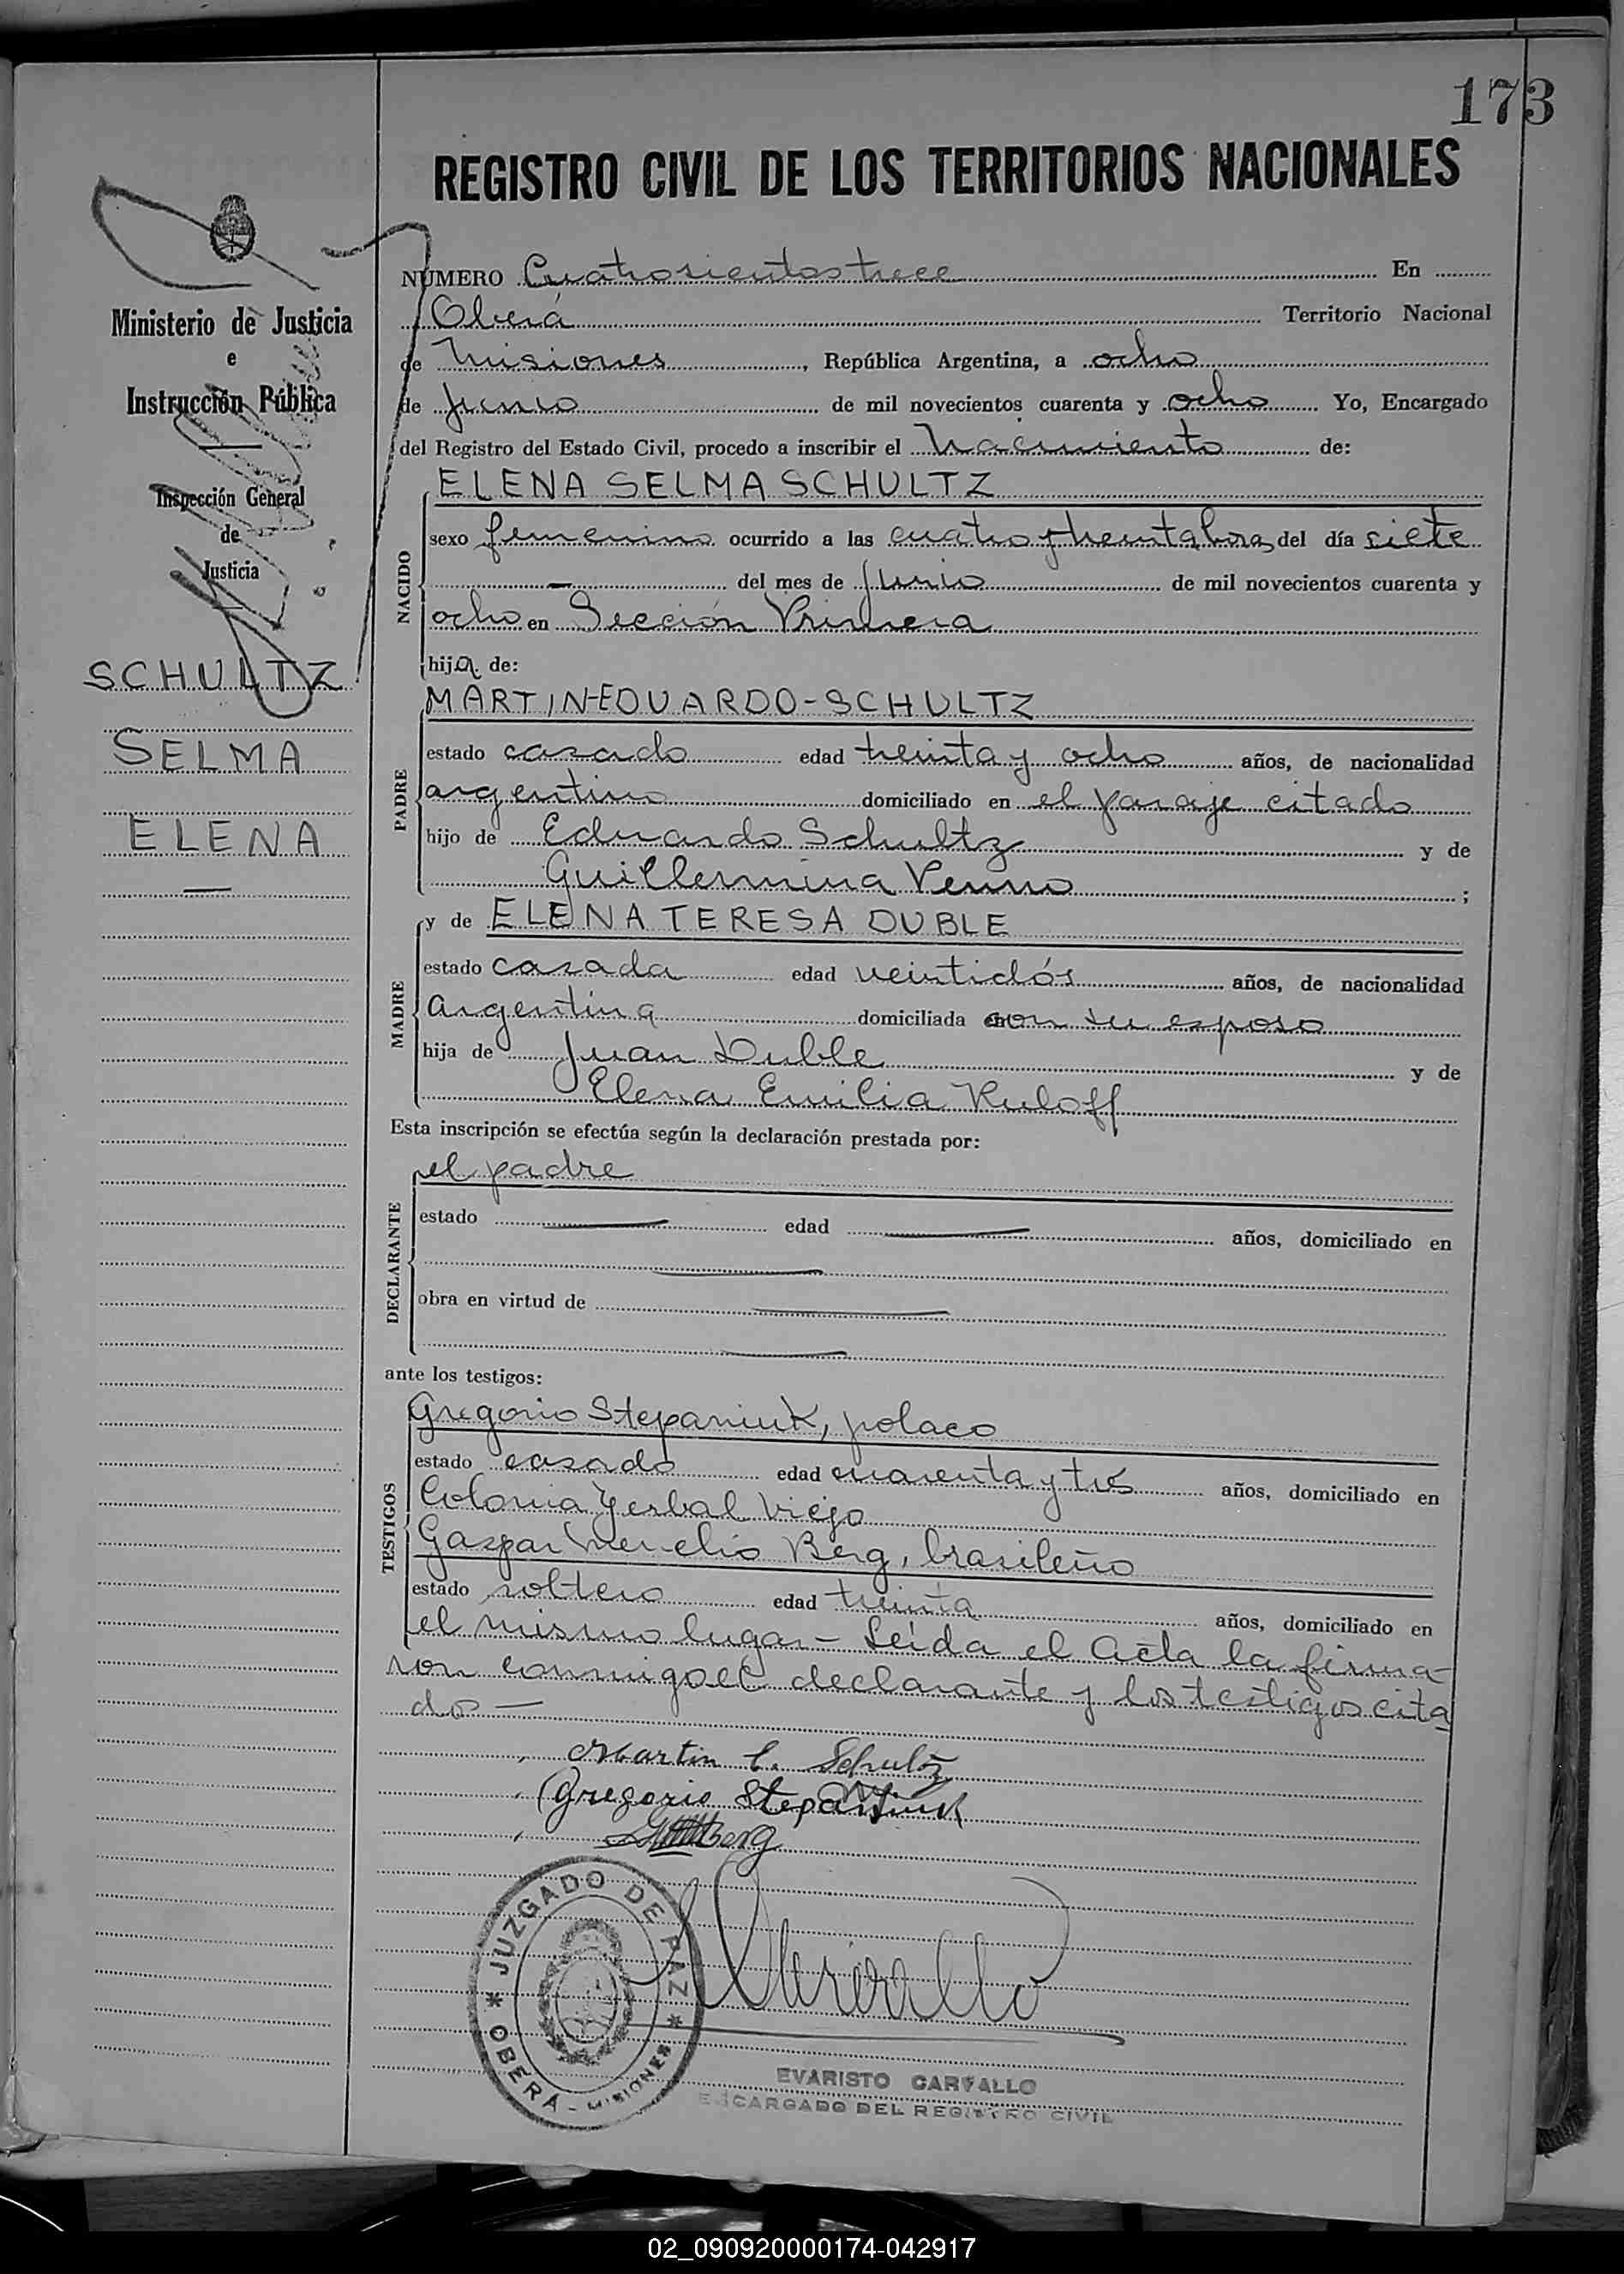 173
REGISTRO CIVIL DE LOS TERRITORIOS NACIONALES
Ministerio de Justicia
e
Instrucción Pública
Inspección General
de
Justicia
SCHULTZ
SELMA
ELENA
NÚMERO Cuatrosientos trece En
Oberá Territorio Nacional
de Misiones, República Argentina, a ocho
de Junio de mil novecientos cuarenta y ocho Yo, Encargado
del Registro del Estado Civil, procedo a inscribir el Nacimiento de:
NACIDO
ELENA SELMA SCHULTZ
sexo femenino ocurrido a las cuatro y treinta horas del día siete
— del mes de Junio de mil novecientos cuarenta y
ocho en Sección Primera
hija de:
PADRE
MARTIN-EDUARDO-SCHULTZ
estado casado edad treinta y ocho años, de nacionalidad
argentino domiciliado en el paraje citado
hijo de Eduardo Schultz y de
Guillermina ;
MADRE
y de ELENA TERESA DUBLE
estado casada edad veintidós años, de nacionalidad
argentina domiciliada con su esposo
hija de Juan Duble y de
Elena Emilia Kuloff
Esta inscripción se efectúa según la declaración prestada por:
DECLARANTE
el padre
estado — edad — años, domiciliado en
—
obra en virtud de —
—
ante los testigos:
TESTIGOS
Gregorio Stepaniuk, polaco
estado casado edad cuarenta y tres años, domiciliado en
Colonia Yerbal Viejo
Gaspar Berg, brasileño
estado soltero edad treinta años, domiciliado en
el mismo lugar - Leída el Acta la firma-
ron conmigo el declarante y los testigos cita
dos —
Martin E. Schultz
Gregorio Stepaniuk
Berg
JUZGADO DE PAZ
* OBERÁ - MISIONES *
EVARISTO CARVALLO
ENCARGADO DEL REGISTRO CIVIL
02_090920000174-042917